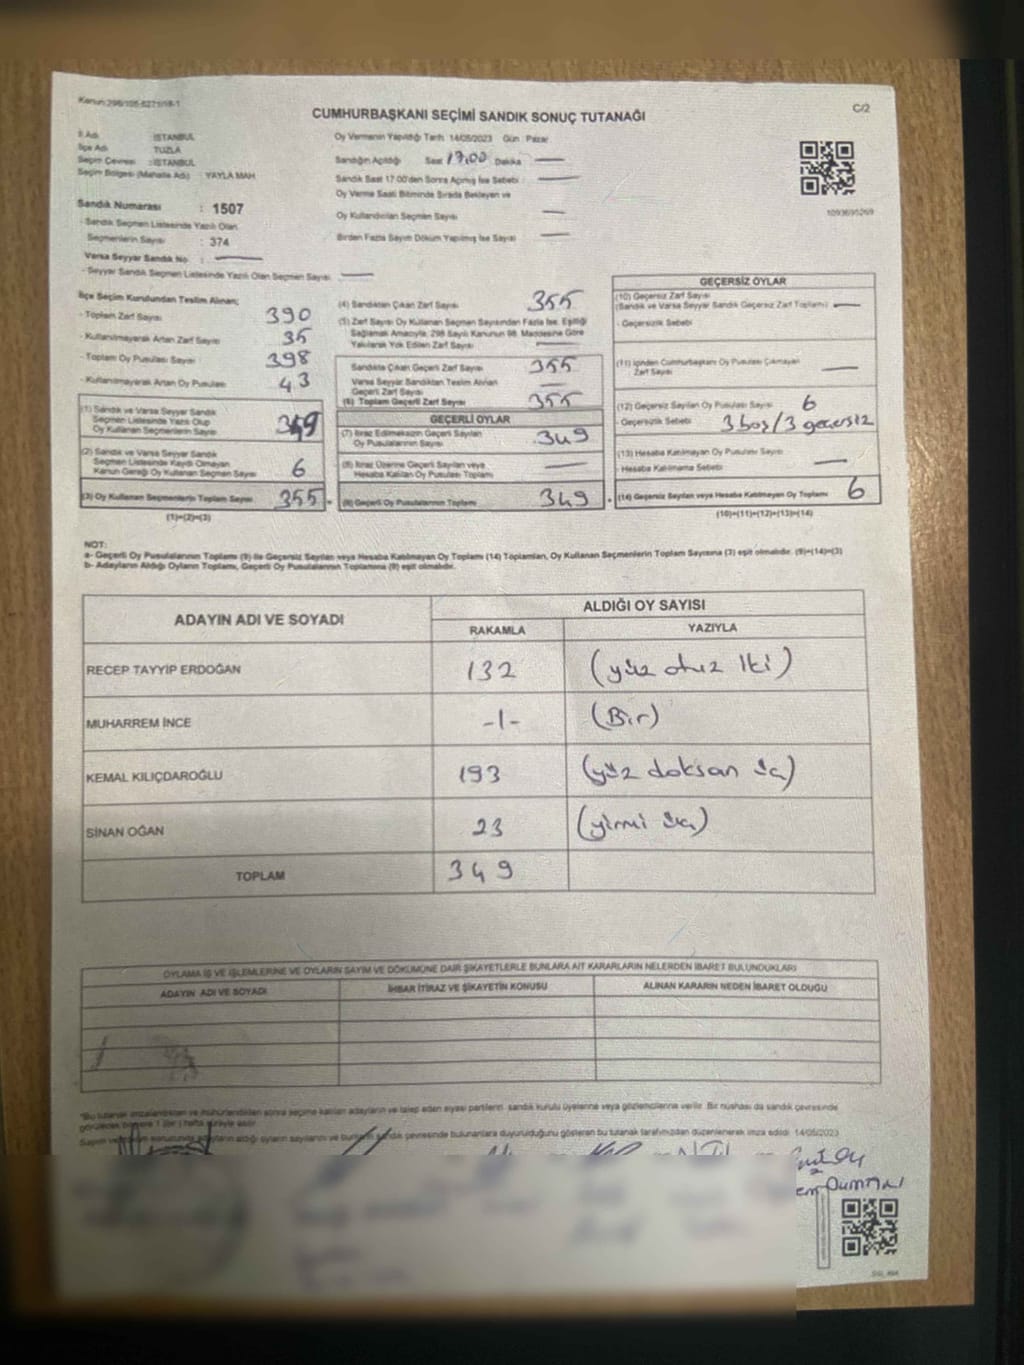 Kanun:298/105-6271/18-1
CUMHURBAŞKANI SEÇİMİ SANDIK SONUÇ TUTANAĞI
C/2
İl Adı : İSTANBUL
İlçe Adı : TUZLA
Seçim Çevresi : İSTANBUL
Seçim Bölgesi (Mahalle Adı) : YAYLA MAH
Sandık Numarası : 1507
- Sandık Seçmen Listesinde Yazılı Olan
Seçmenlerin Sayısı : 374
Varsa Seyyar Sandık No :
- Seyyar Sandık Seçmen Listesinde Yazılı Olan Seçmen Sayısı
Oy Vermenin Yapıldığı Tarih 14/05/2023 Gün Pazar
Sandığın Açıldığı Saat 17,00 Dakika
Sandık Saat 17:00'den Sonra Açılmış İse Sebebi
Oy Verme Saati Bitiminde Sırada Bekleyen ve
Oy Kullandırılan Seçmen Sayısı
Birden Fazla Sayım Döküm Yapılmış İse Sayısı
1093695269
İlçe Seçim Kurulundan Teslim Alınan;
- Toplam Zarf Sayısı 390
- Kullanılmayarak Artan Zarf Sayısı 35
- Toplam Oy Pusulası Sayısı 398
- Kullanılmayarak Artan Oy Pusulası 43
(1) Sandık ve Varsa Seyyar Sandık
Seçmen Listesinde Yazılı Olup
Oy Kullanan Seçmenlerin Sayısı 349
(2) Sandık ve Varsa Seyyar Sandık
Seçmen Listesinde Kaydı Olmayan
Kanun Gereği Oy Kullanan Seçmen Sayısı 6
(3) Oy Kullanan Seçmenlerin Toplam Sayısı 355
(1)+(2)=(3)
(4) Sandıktan Çıkan Zarf Sayısı 355
(5) Zarf Sayısı Oy Kullanan Seçmen Sayısından Fazla İse, Eşitliği
Sağlamak Amacıyla, 298 Sayılı Kanunun 98. Maddesine Göre
Yakılarak Yok Edilen Zarf Sayısı
Sandıkta Çıkan Geçerli Zarf Sayısı 355
Varsa Seyyar Sandıktan Teslim Alınan
Geçerli Zarf Sayısı
(6) Toplam Geçerli Zarf Sayısı 355
GEÇERLİ OYLAR
(7) İtiraz Edilmeksizin Geçerli Sayılan
Oy Pusulalarının Sayısı 349
(8) İtiraz Üzerine Geçerli Sayılan veya
Hesaba Katılan Oy Pusulaları Toplamı
(9) Geçerli Oy Pusulalarının Toplamı 349
GEÇERSİZ OYLAR
(10) Geçersiz Zarf Sayısı
(Sandık ve Varsa Seyyar Sandık Geçersiz Zarf Toplamı)
- Geçersizlik Sebebi
(11) İçinden Cumhurbaşkanı Oy Pusulası Çıkmayan
Zarf Sayısı
(12) Geçersiz Sayılan Oy Pusulası Sayısı 6
- Geçersizlik Sebebi 3 boş/3 geçersiz
(13) Hesaba Katılmayan Oy Pusulası Sayısı
- Hesaba Katılmama Sebebi
(14) Geçersiz Sayılan veya Hesaba Katılmayan Oy Toplamı 6
(10)+(11)+(12)+(13)=(14)
NOT:
a- Geçerli Oy Pusulalarının Toplamı (9) ile Geçersiz Sayılan veya Hesaba Katılmayan Oy Toplamı (14) Toplamları, Oy Kullanan Seçmenlerin Toplam Sayısına (3) eşit olmalıdır. (9)+(14)=(3)
b- Adayların Aldığı Oyların Toplamı, Geçerli Oy Pusulalarının Toplamına (9) eşit olmalıdır.
ADAYIN ADI VE SOYADI
ALDIĞI OY SAYISI
RAKAMLA YAZIYLA
RECEP TAYYİP ERDOĞAN 132 (yüz otuz iki)
MUHARREM İNCE -1- (Bir)
KEMAL KILIÇDAROĞLU 193 (yüz doksan üç)
SİNAN OĞAN 23 (yirmi üç)
TOPLAM 349
OYLAMA İŞ VE İŞLEMLERİNE VE OYLARIN SAYIM VE DÖKÜMÜNE DAİR ŞİKAYETLERLE BUNLARA AİT KARARLARIN NELERDEN İBARET BULUNDUKLARI
ADAYIN ADI VE SOYADI İHBAR İTİRAZ VE ŞİKAYETİN KONUSU ALINAN KARARIN NEDEN İBARET OLDUĞU
"Bu tutanak imzalandıktan ve mühürlendikten sonra seçime katılan adayların ve talep eden siyasi partilerin sandık kurulu üyelerine veya gözlemcilerine verilir. Bir nüshası da sandık çevresinde
görülecek bir yere 1 (bir) hafta süreyle asılır.
adayların aldığı oyların sayılarını ve bunların sandık çevresinde bulunanlara duyurulduğunu gösteren bu tutanak tarafımızdan düzenlenerek imza edildi 14/05/2023